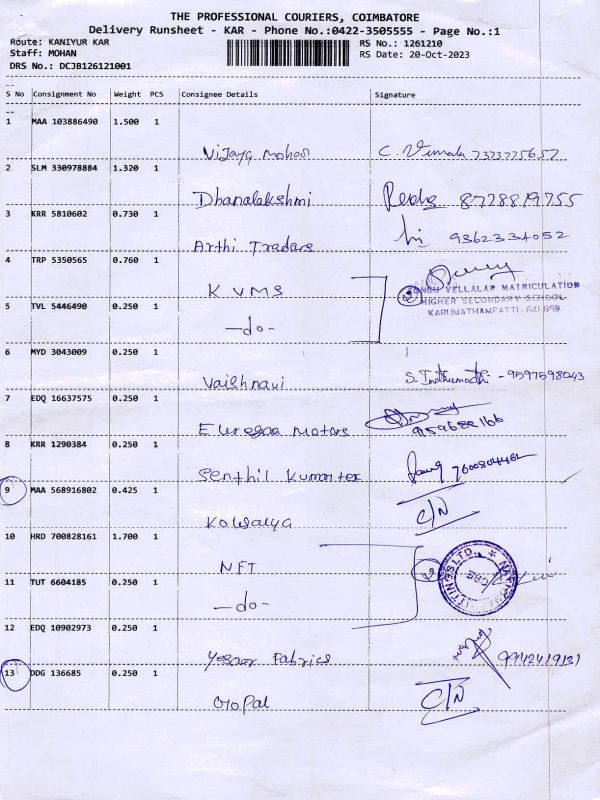 THE PROFESSIONAL COURIERS, COIMBATORE
Delivery Runsheet - KAR - Phone No.:0422-3505555 - Page No.:1
Route: KANIYUR KAR
RS No.: 1261210
Staff: MOHAN
RS Date: 20-Oct-2023
DRS No.: DCJB126121001
S No Consignment No Weight PCS Consignee Details Signature
1 MAA 103886490 1.500 1
Vijaya Mohan C. Vimala 7373775657
2 SLM 330978884 1.320 1
Dhanalakshmi 8778819755
3 KRR 5810602 0.730 1
Arthi Tradars 9362334052
4 TRP 5350565 0.760 1
K V M S
KONGU VELLALAR MATRICULATION
HIGHER SECONDARY SCHOOL
KARUMATHAMPATTI - 641 659
5 TVL 5446490 0.250 1
-do-
6 MYD 3043009 0.250 1
Vaishnavi S. Indhumathi - 9597598043
7 EDQ 16637575 0.250 1
Motors 9159682166
8 KRR 1290384 0.250 1
Senthil Kumar tex
9 MAA 568916802 0.425 1
Kowalya C/N
10 HRD 700828161 1.700 1
NFT
11 TUT 6604185 0.250 1
-do-
12 EDQ 10902973 0.250 1
Fabrics 9942419131
13 DDG 136685 0.250 1
Gopal C/N